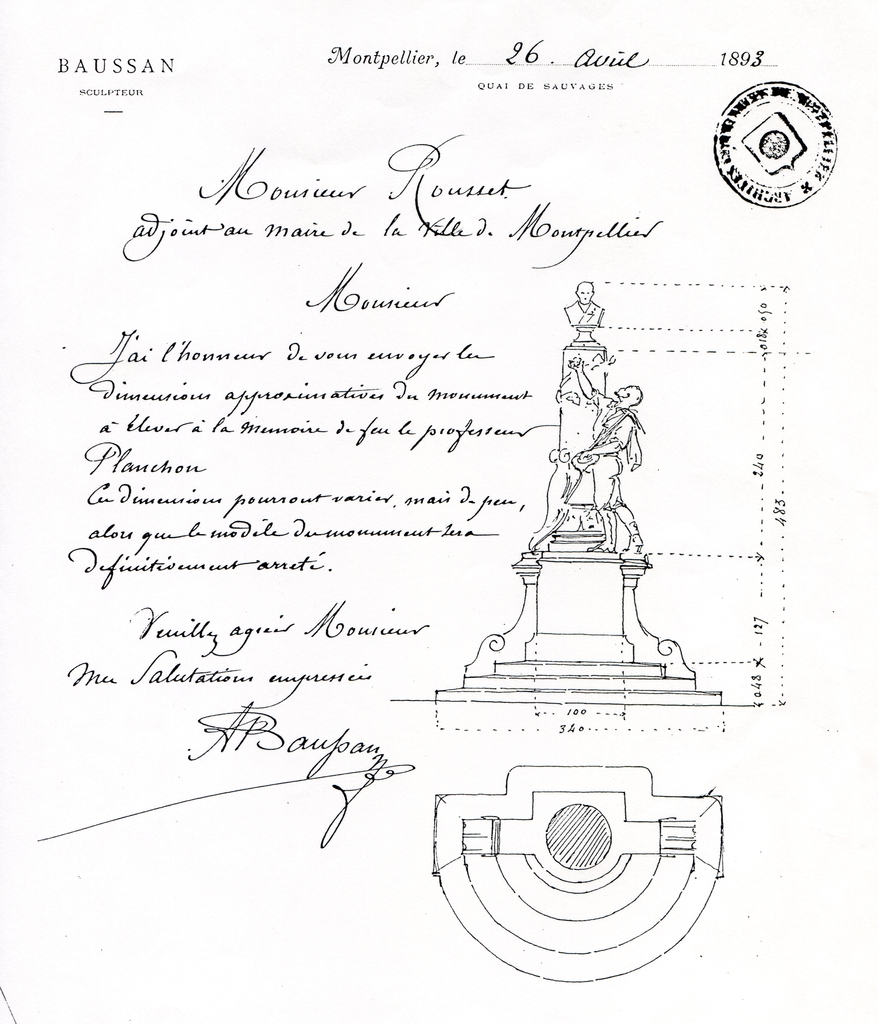 BAUSSAN
SCULPTEUR
Montpellier, le 26. Avril 1893
QUAI DE SAUVAGES
Monsieur Rousset
adjoint au maire de la Ville de Montpellier
Monsieur
J'ai l'honneur de vous envoyer les
dimensions approximatives du monument
à élever à la memoire de feu le professeur
Planchon
Ces dimensions pourront varier, mais de peu,
alors que le modèle du monument sera
définitivement arreté.
Veuillez agréer Monsieur
mes Salutations empressées
ABaussan
050
018
240
483
127
048
100
340
ARCHIVES DE MONTPELLIER